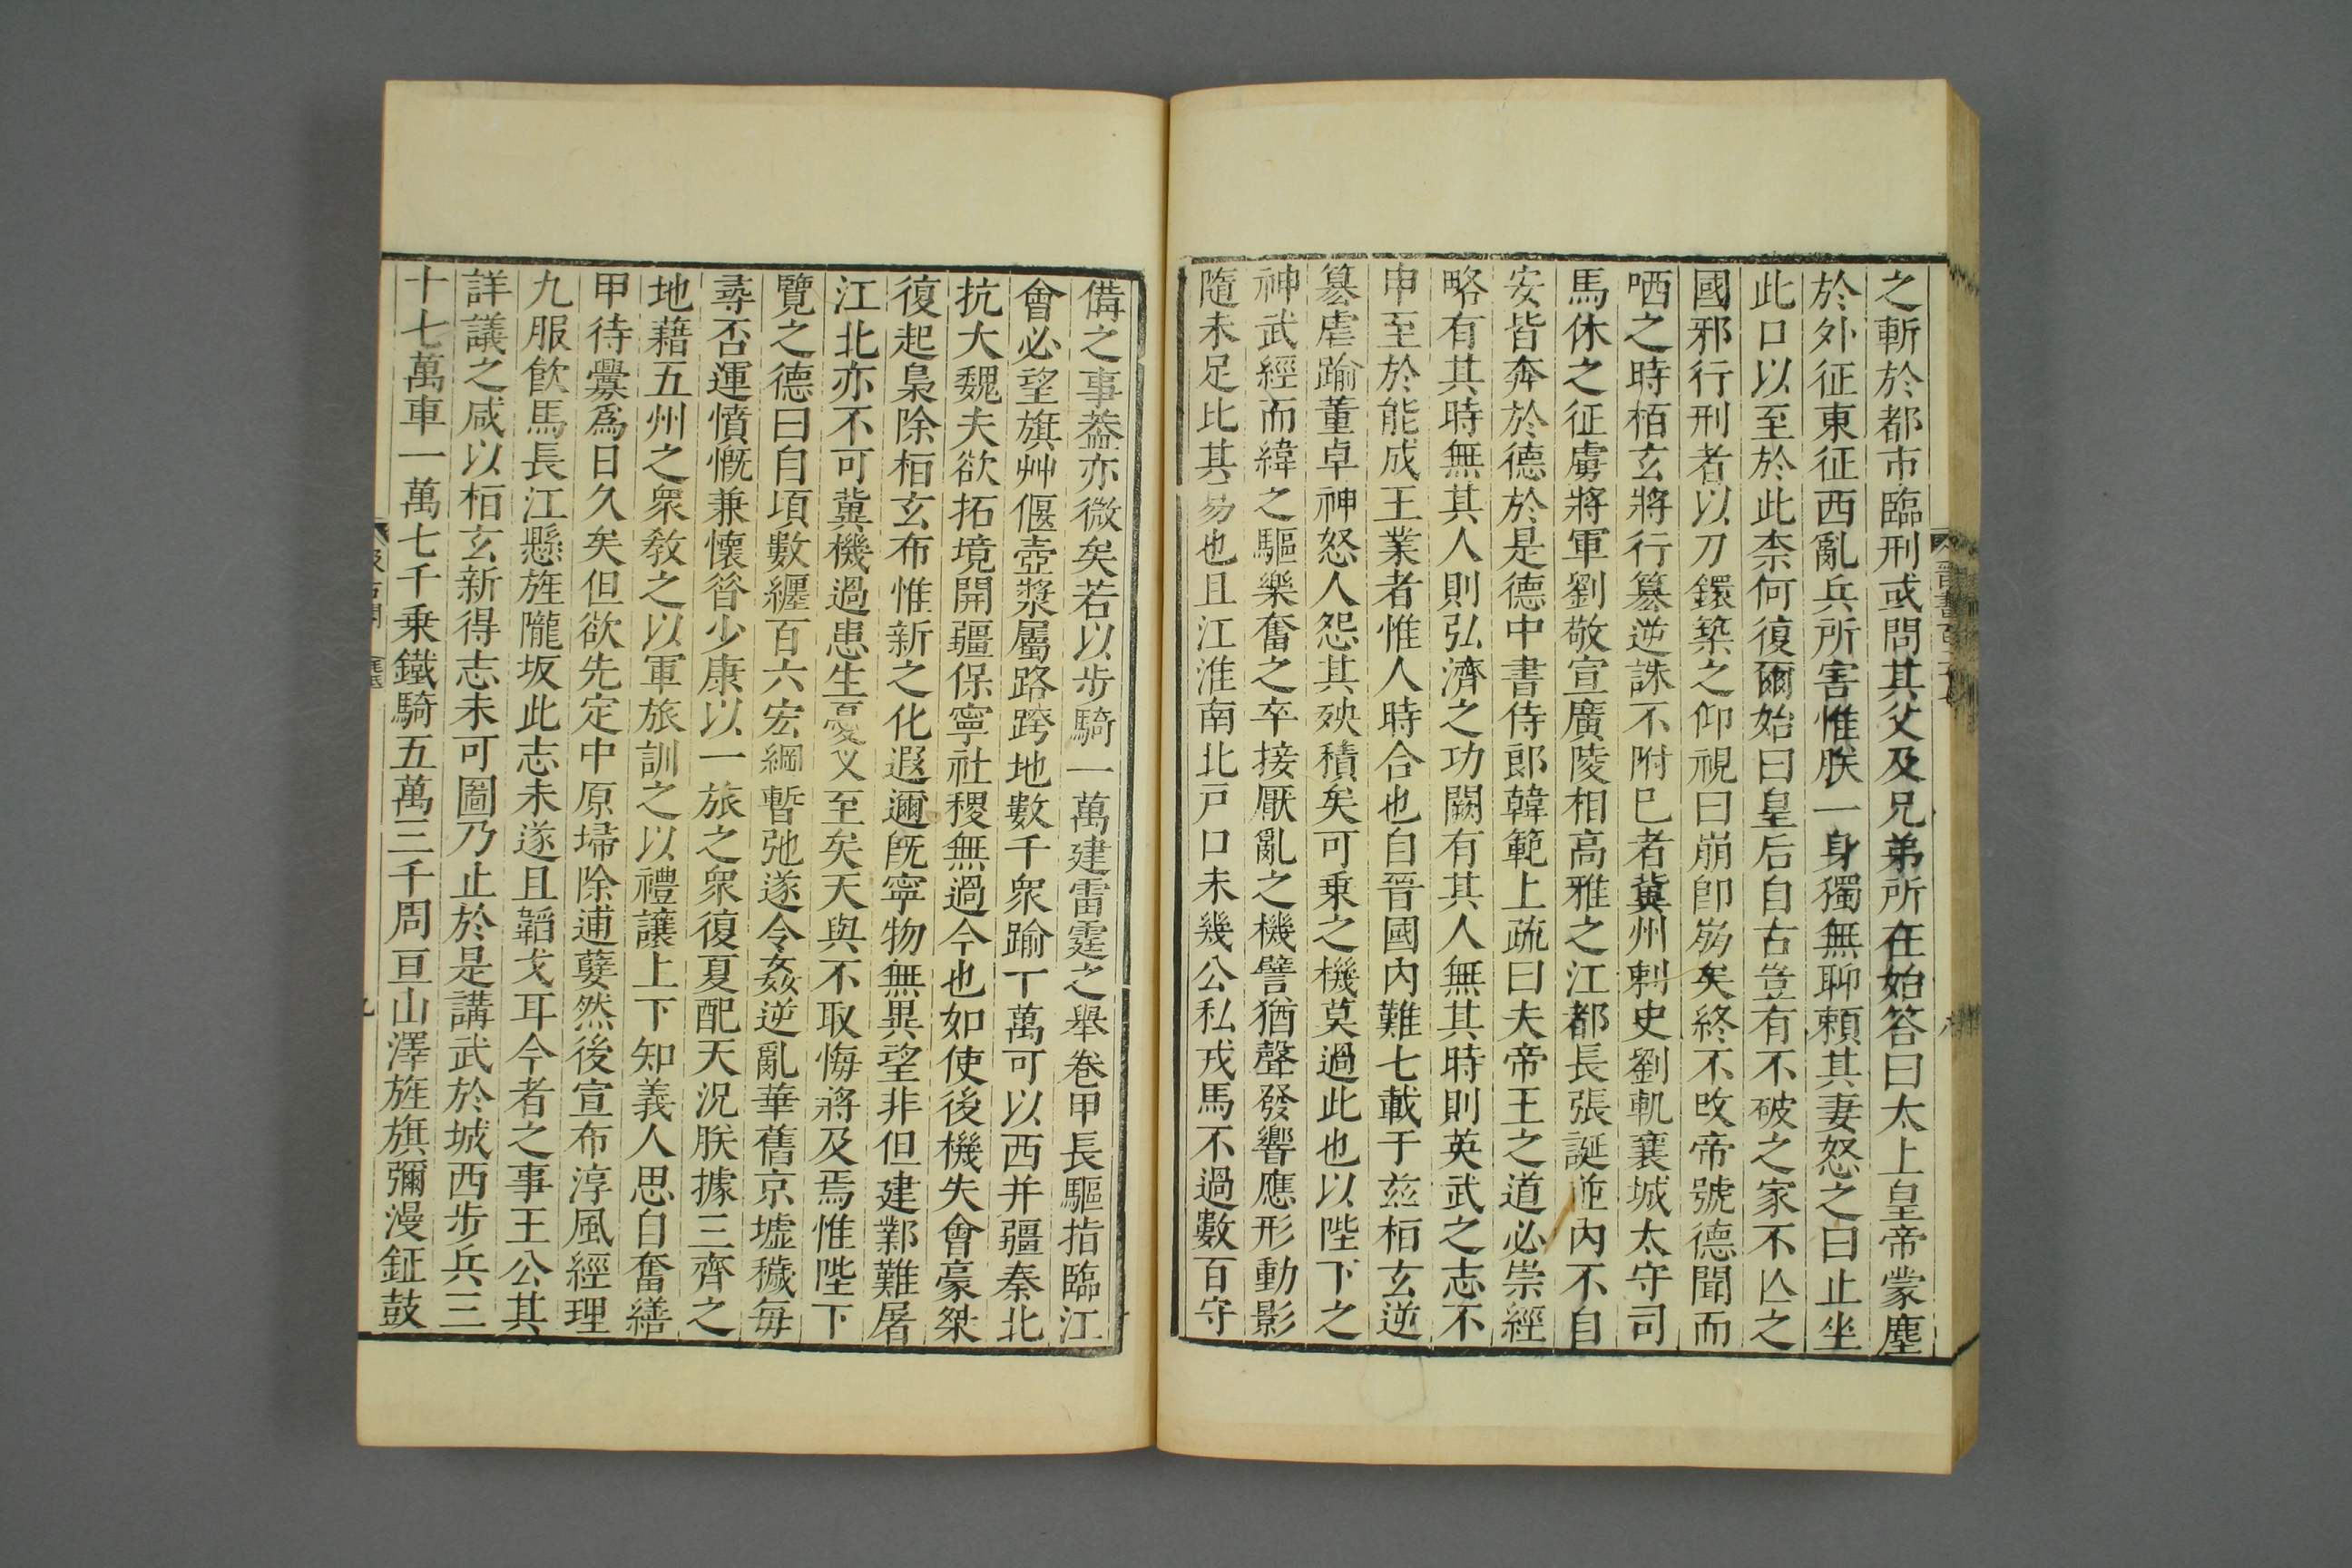 之斬於都市臨刑或問其父及兄弟所在始答曰太上皇帝蒙塵
於外征東征西亂兵所害惟朕一身獨無聊賴其妻怒之曰止坐
此口以至於此柰何復爾始曰皇后自古豈有不破之家不亾之
國邪行刑者以刀鐶築之仰視曰崩卽崩矣終不改帝號德聞而
哂之時桓玄將行篡逆誅不附已者冀州刺史劉軌襄城太守司
馬休之征虜將軍劉敬宣廣陵相高雅之江都長張誕並內不自
安皆奔於德於是德中書侍郎韓範上疏曰夫帝王之道必崇經
略有其時無其人則弘濟之功闕有其人無其時則英武之志不
申至於能成王業者惟人時合也自晉國內難七載于茲桓玄逆
篡虐踰董卓神怒人怨其殃積矣可乗之機莫過此也以陛下之
神武經而緯之驅樂奮之卒接厭亂之機譬猶聲發響應形動影
隨未足比其易也且江淮南北戸口未幾公私戎馬不過數百守
備之事葢亦微矣若以步騎一萬建雷霆之舉卷甲長驅指臨江
會必望旗艸偃壺漿屬路跨地數千衆踰十萬可以西并疆秦北
抗大魏夫欲拓境開疆保寧社稷無過今也如使後機失會豪桀
復起梟除桓玄布惟新之化遐邇旣寧物無異望非但建鄴難屠
江北亦不可冀機過患生憂必至矣天與不取悔將及焉惟陛下
覽之德曰自頃數纏百六宏綱暫弛遂令姦逆亂華舊京墟穢每
尋否運憤慨兼懷昝少康以一旅之衆復夏配天況朕據三齊之
地藉五州之衆敎之以軍旅訓之以禮讓上下知義人思自奮繕
甲待釁爲日久矣但欲先定中原埽除逋孽然後宣布淳風經理
九服飮馬長江懸旌隴坂此志未遂且韜戈耳今者之事王公其
詳議之咸以桓玄新得志未可圖乃止於是講武於城西步兵三
十七萬車一萬七千乗鐵騎五萬三千周亘山澤旌旗彌漫鉦鼓